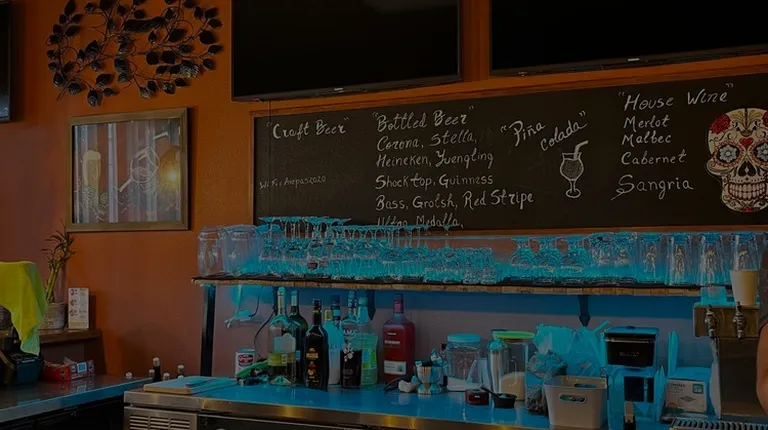 "Craft Beer"
WiFi: Arepas2020
"Bottled Beer"
Corona, Stella,
Heineken, Yuengling
Shock top, Guinness
Bass, Grolsh, Red Stripe
Ultra, Medalla,
"Piña
Colada"
"House Wine"
Merlot
Malbec
Cabernet
Sangria